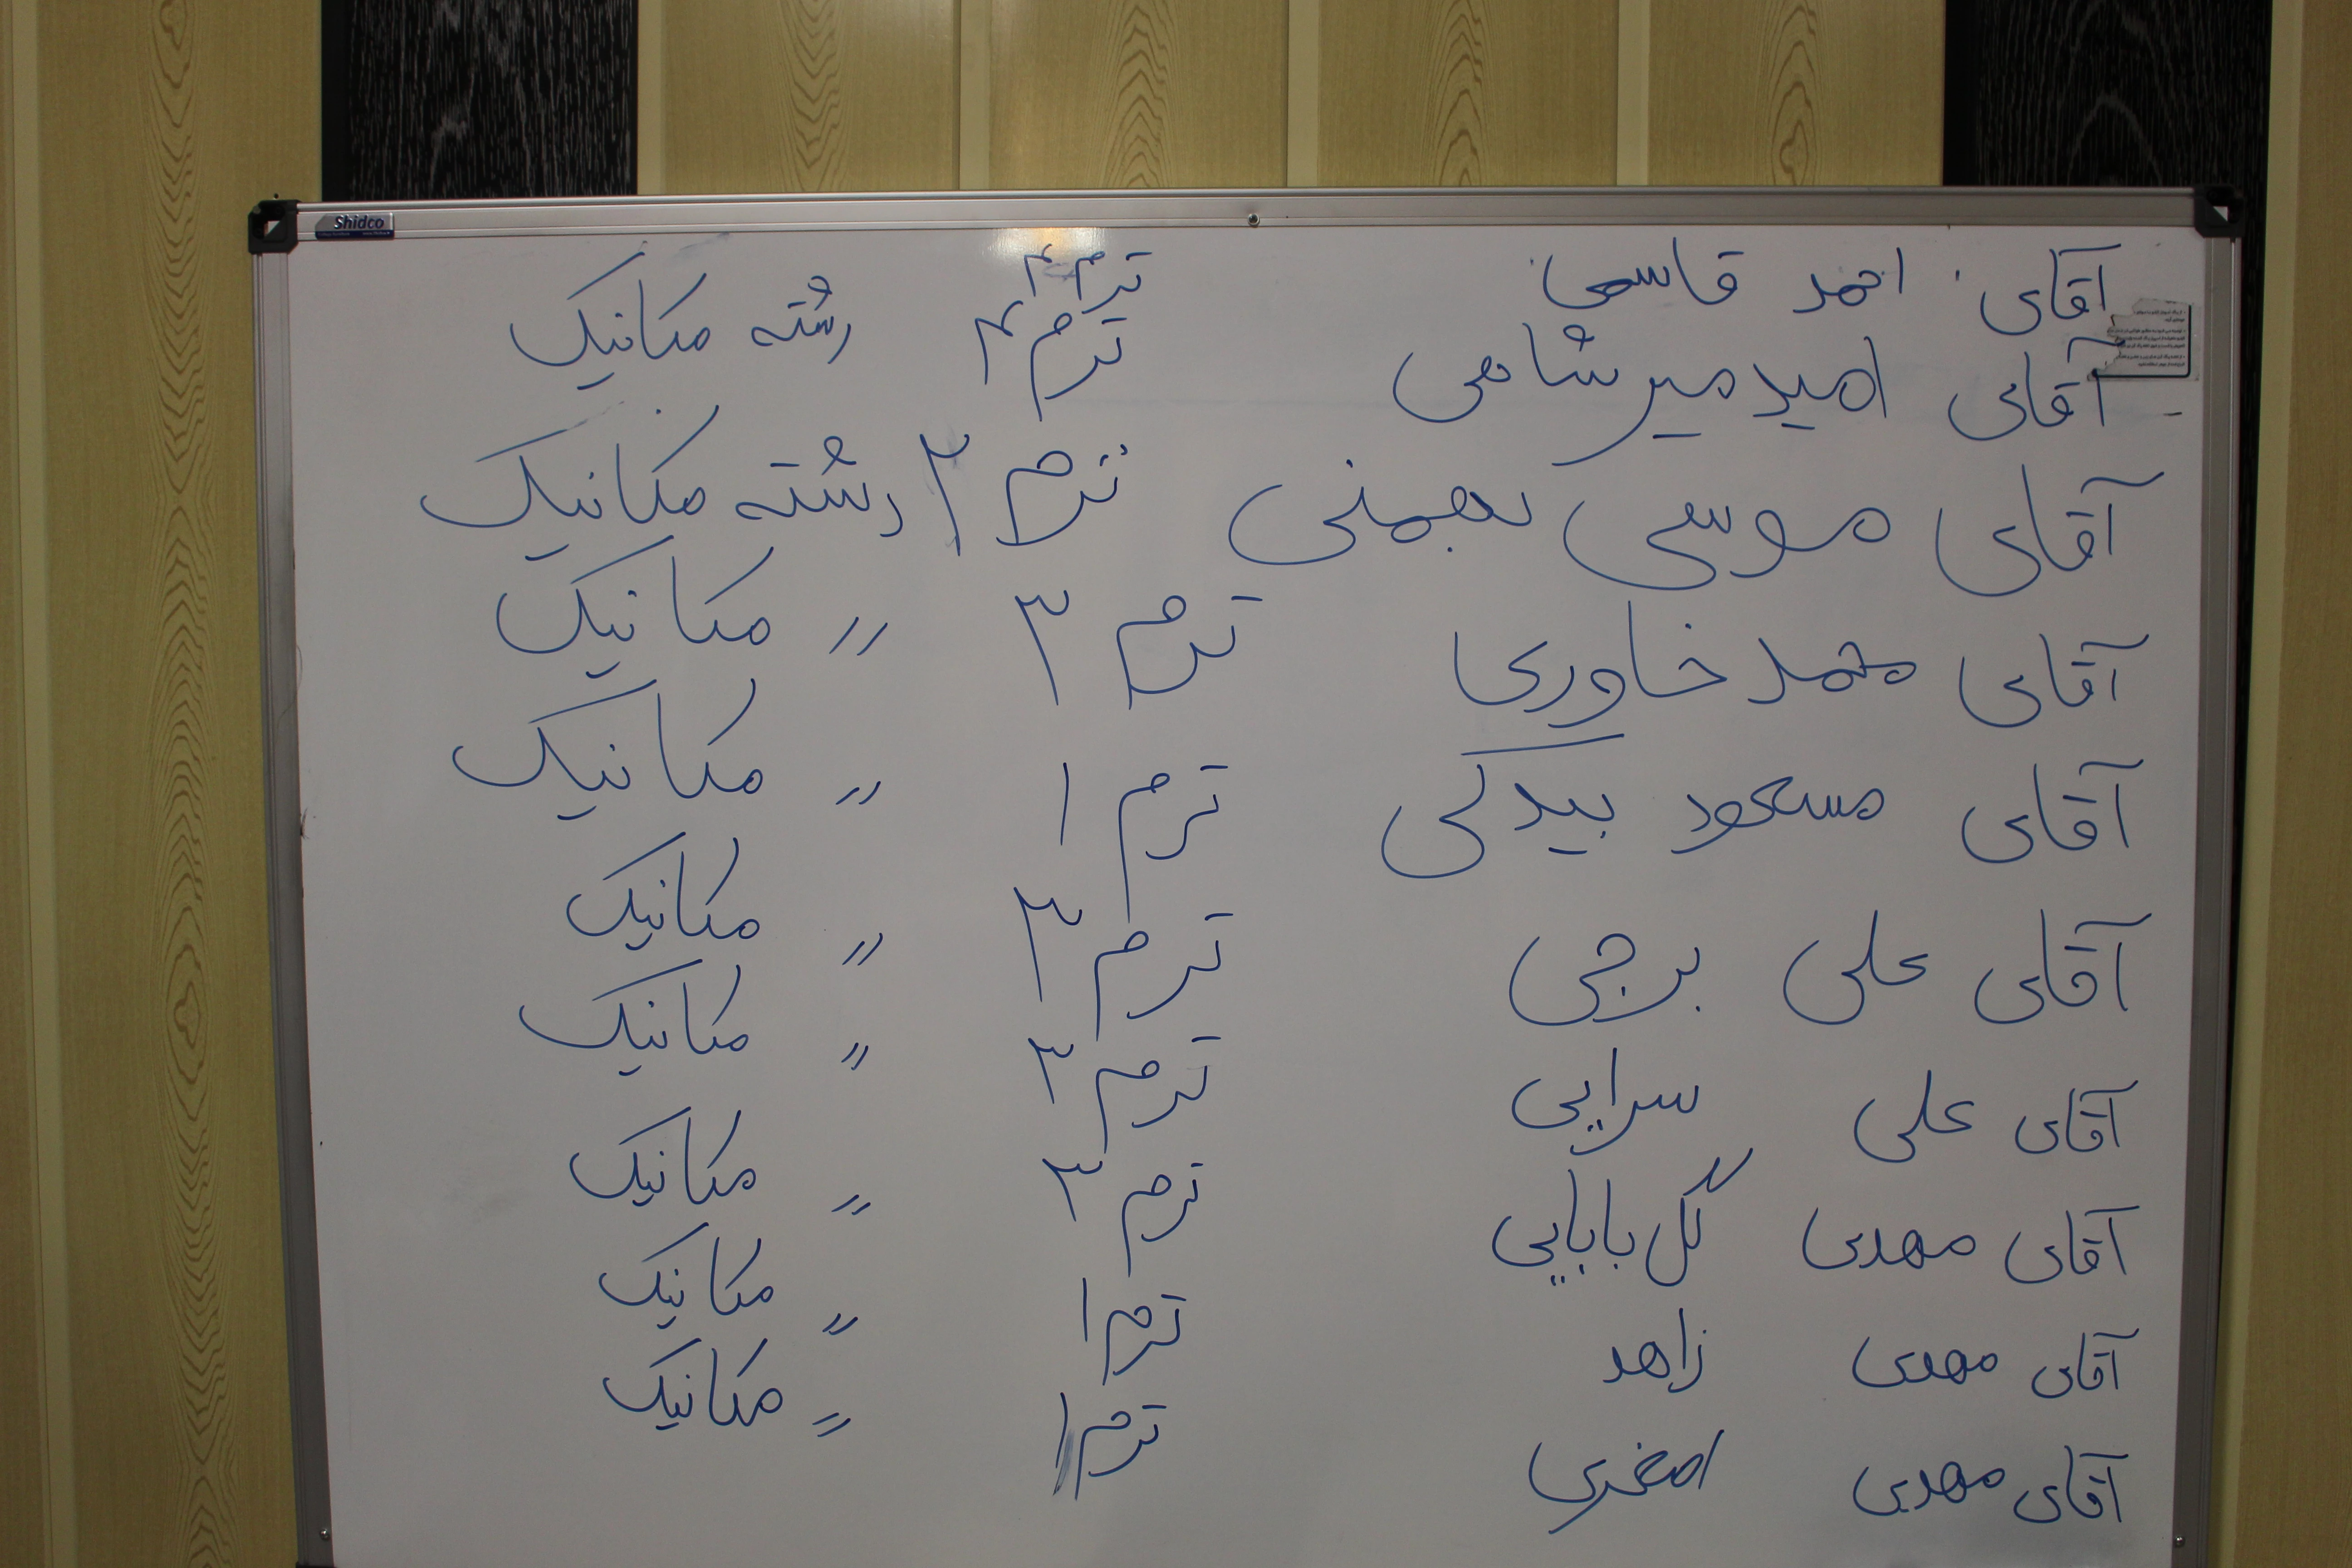 Shidco
آقای احمد قاسمی ترم ۳
آقای امید میرشاهی ترم ۳ رشته مکانیک
آقای موسی بهمنی ترم ۲ رشته مکانیک
آقای محمد خاوری ترم ۳ 〃 مکانیک
آقای مسعود بیدکی ترم ۱ 〃 مکانیک
آقای علی برجی ترم ۳ 〃 مکانیک
آقای علی سرایی ترم ۳ 〃 مکانیک
آقای مهدی گل بابایی ترم ۳ 〃 مکانیک
آقای مهدی زاهد ترم ۱ 〃 مکانیک
آقای مهدی اصغری ترم ۱ 〃 مکانیک